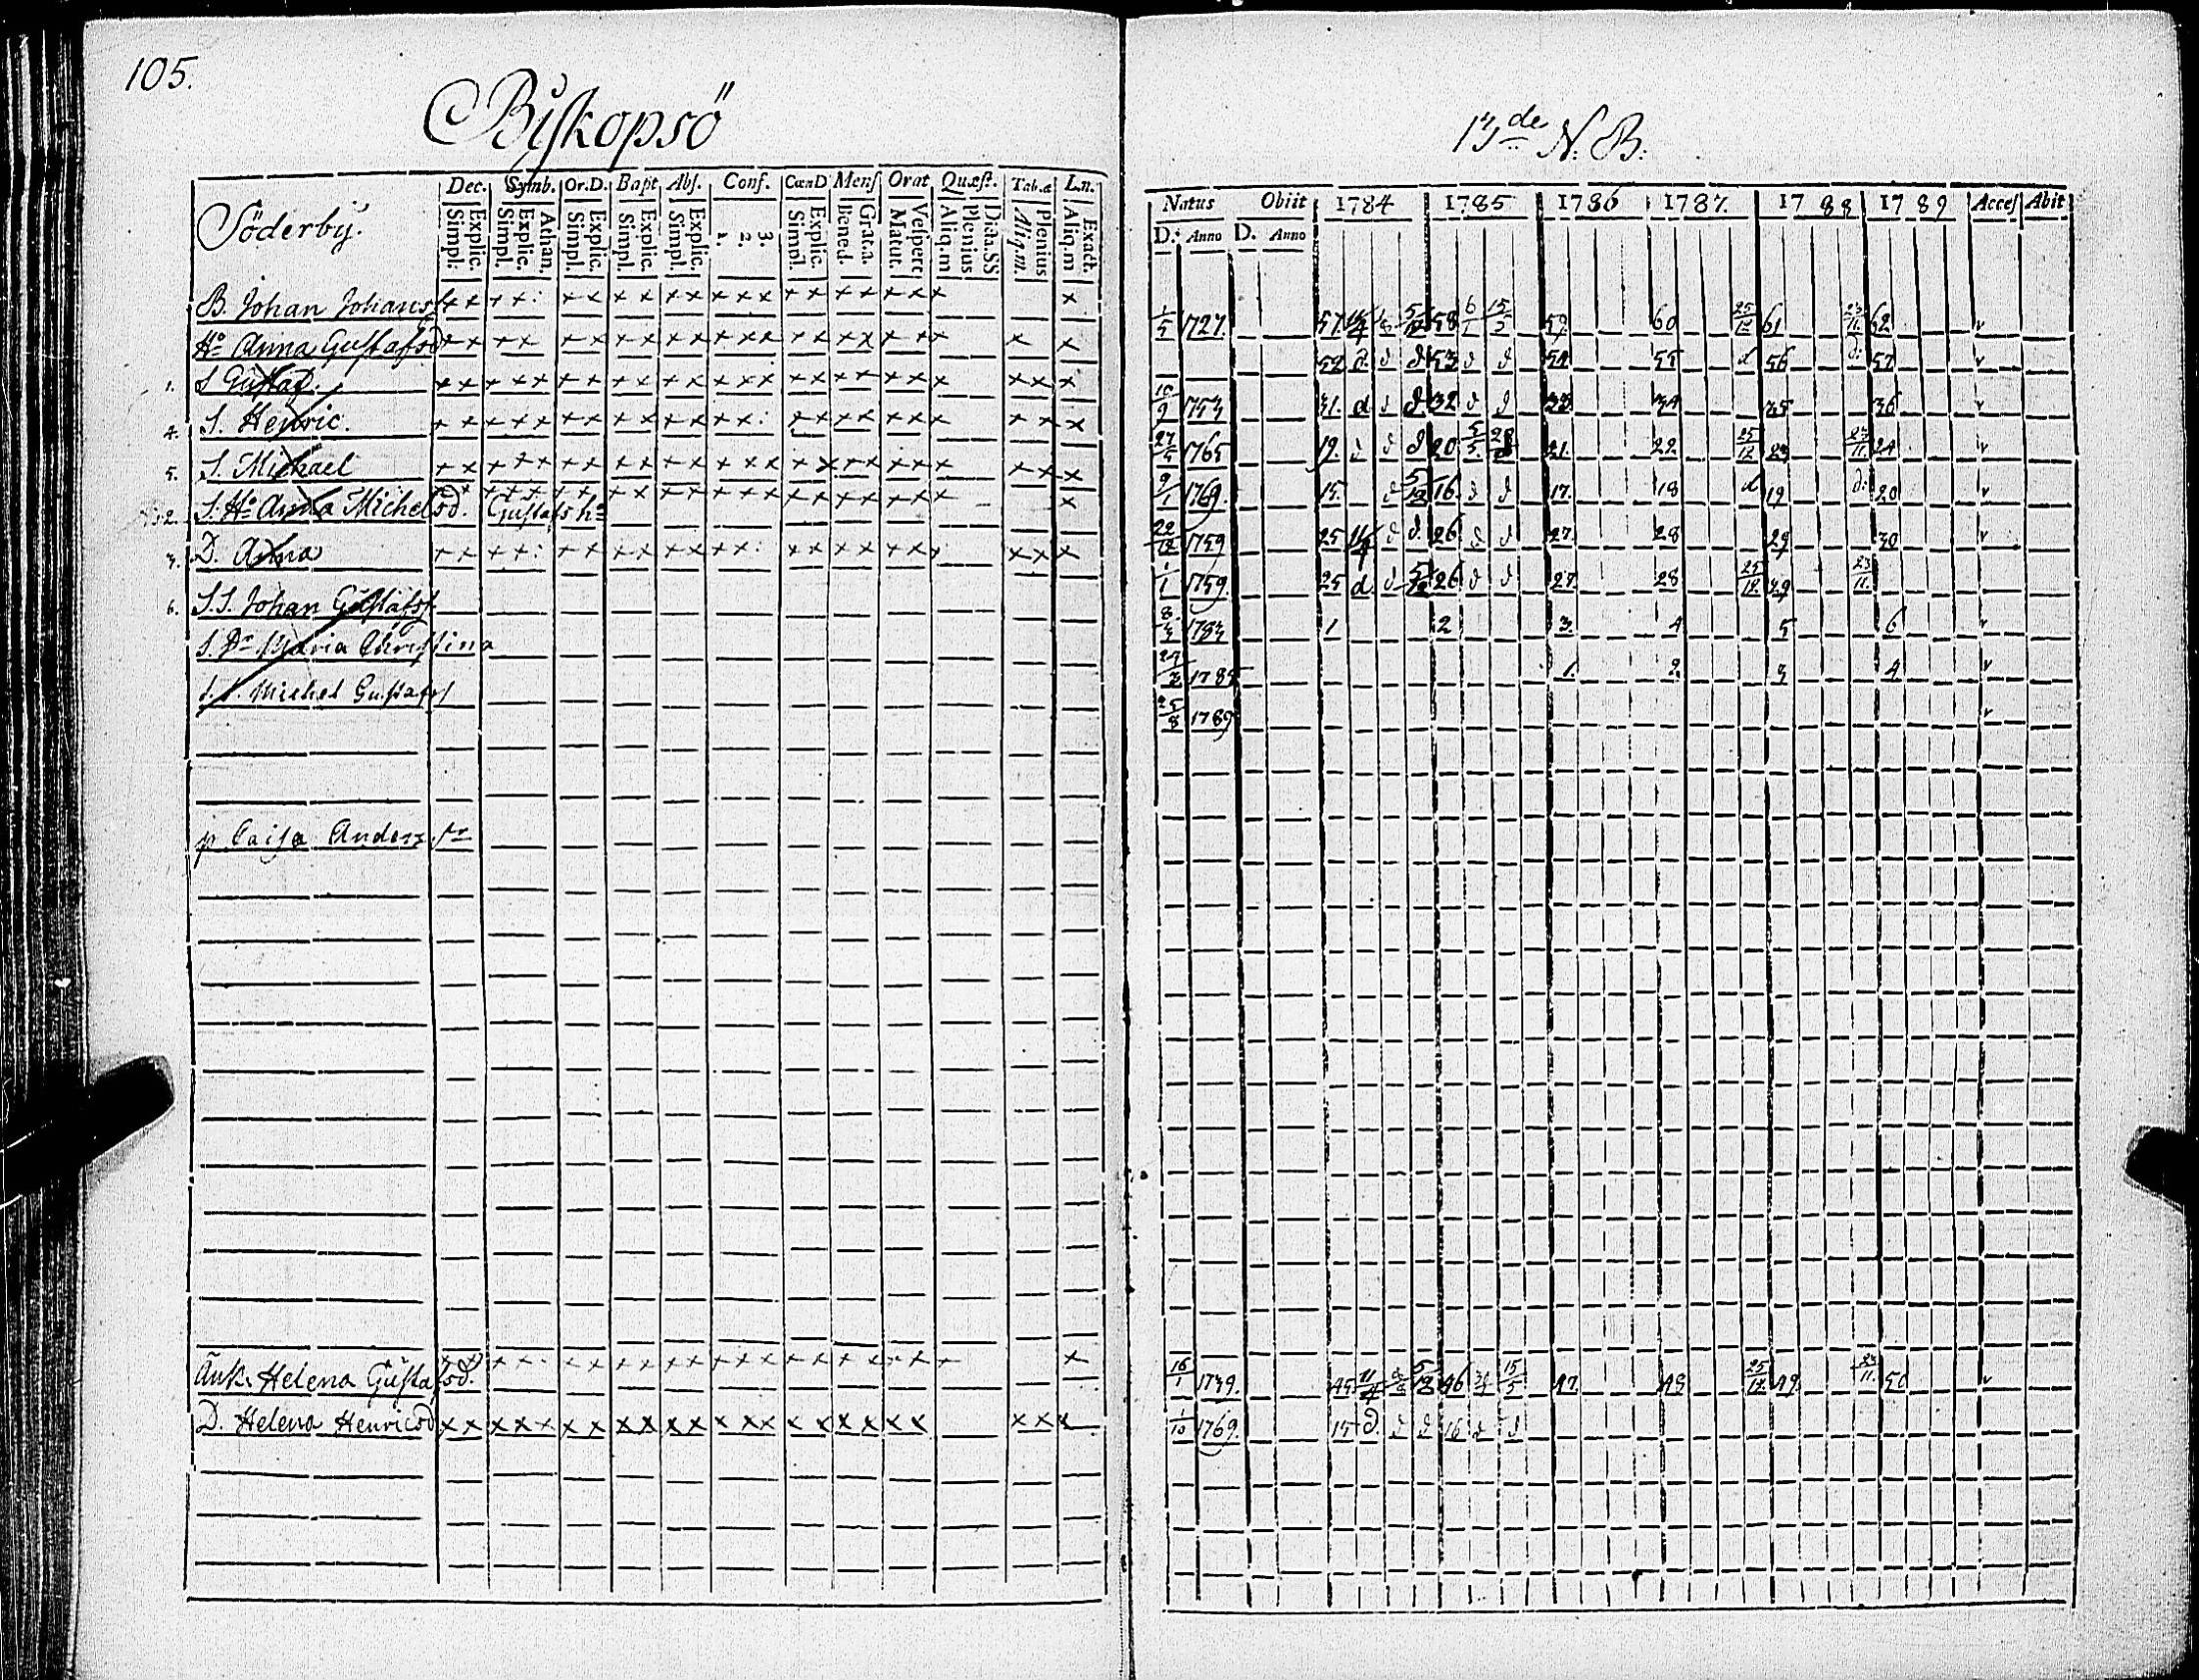 105.
Biskopsö
13de N. B.
Söderby.
Dec. Symb. Or.D. Bapt Abs. Conf. Cœn D Mens Orat Quæst. Tab.æ L.n.
Simpl. Explic. Simpl. Explic. Athan. Simpl. Explic. Simpl. Explic. Simpl. Explic. 1. 2. 3. Simpl. Explic. Bened. Grat.a. Matut. Vespert. Aliq.m Plenius Dida.SS Aliq.m. Plenius Aliq.m Exact.
Natus Obiit 1784 1785 1786 1787. 1788 1789 Acces Abit
D. Anno D. Anno
B. Johan Johanss 1727. 57 58 59 60 25/12 61 23/11 62
Ho Anna Gustafsd 52 d. d d 53 d d 54 55 d 56 d: 57
1. S Gustaf. 10/9 1753 31. d d d 32 d d 33 34 35 36
4. S. Henric. 27/5 1765 19. d d d 20 21. 22 25/12 23 23/11 24
5. S. Michael 9/1 1769. 15. d 16. d d 17. 18 d 19 d: 20
2. S. Ho Anna Michelsd. Gustafs ho 22/12 1759 25 d d 26 d d 27. 28 29 30
3. D. Anna 1/1 1759. 25 d. d 26 d d 27. 28 25/12 29 23/11.
6. S.S. Johan Gustafss 1783 1 2 3. 4 5 6
S. Dr Maria Christina 1785 1. 2. 3 4
S. S. Michel Gustafss 25/8 1789
p Caisa Anders. dr
Änk. Helena Gustafsd. 16/1 1739. 45 46 15/5 47. 48 25/12 49 23/11. 50
D. Helena Henricsd 1/10 1769. 15 d. d d 16 d d